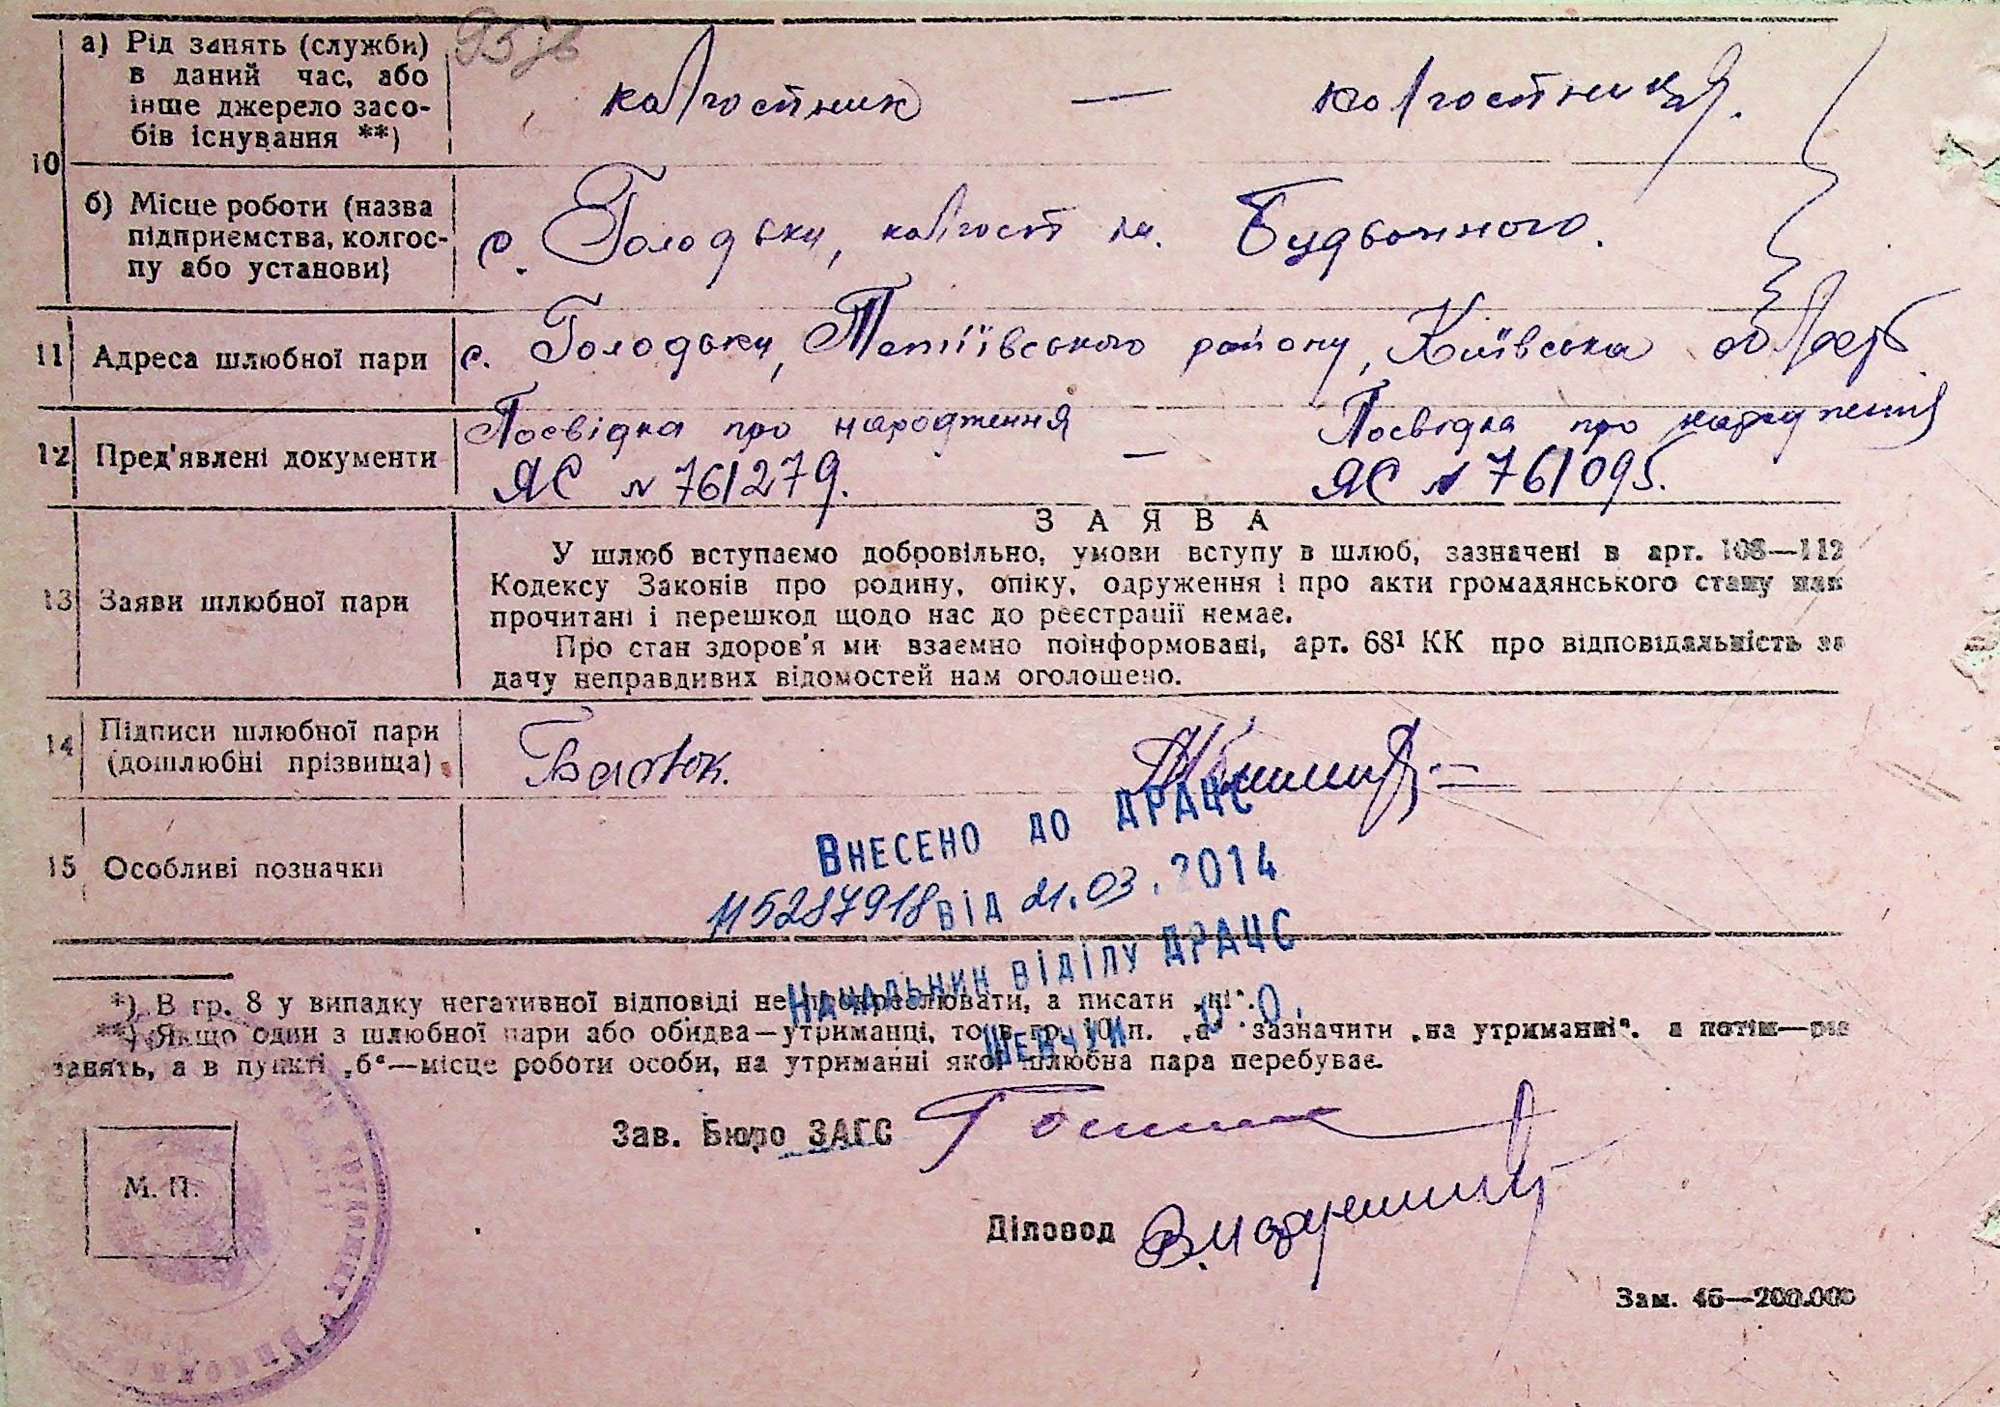 10
а) Рід занять (служби)
в даний час, або
інше джерело засо-
бів існування **)
колгоспник — колгоспниця.
б) Місце роботи (назва
підприємства, колгос-
пу або установи)
с. Голодьки, колгосп ім. Будьонного.
11 Адреса шлюбної пари
с. Голодьки, Тетіївського району, Київська область
12 Пред'явлені документи
Посвідка про народження — Посвідка про народження
ЯС № 761279. ЯС № 761095.
13 Заяви шлюбної пари
ЗАЯВА
У шлюб вступаємо добровільно, умови вступу в шлюб, зазначені в арт. 108—112
Кодексу Законів про родину, опіку, одруження і про акти громадянського стану нам
прочитані і перешкод щодо нас до реєстрації немає.
Про стан здоров'я ми взаємно поінформовані, арт. 68¹ КК про відповідальність за
дачу неправдивих відомостей нам оголошено.
14 Підписи шлюбної пари
(дошлюбні прізвища)
15 Особливі позначки
Внесено до ДРАЦС
115287918 від 21.03.2014
Начальник відділу ДРАЦС
Шевчук О.О.
*) В гр. 8 у випадку негативної відповіді не прокреслювати, а писати „ні“.
**) Якщо один з шлюбної пари або обидва—утриманці, то в гр. 10 п. „а“ зазначити „на утриманні“, а потім—рід
занять, а в пункті „б“—місце роботи особи, на утриманні якої шлюбна пара перебуває.
Зав. Бюро ЗАГС
М. П.
Діловод
Зам. 46—200.000